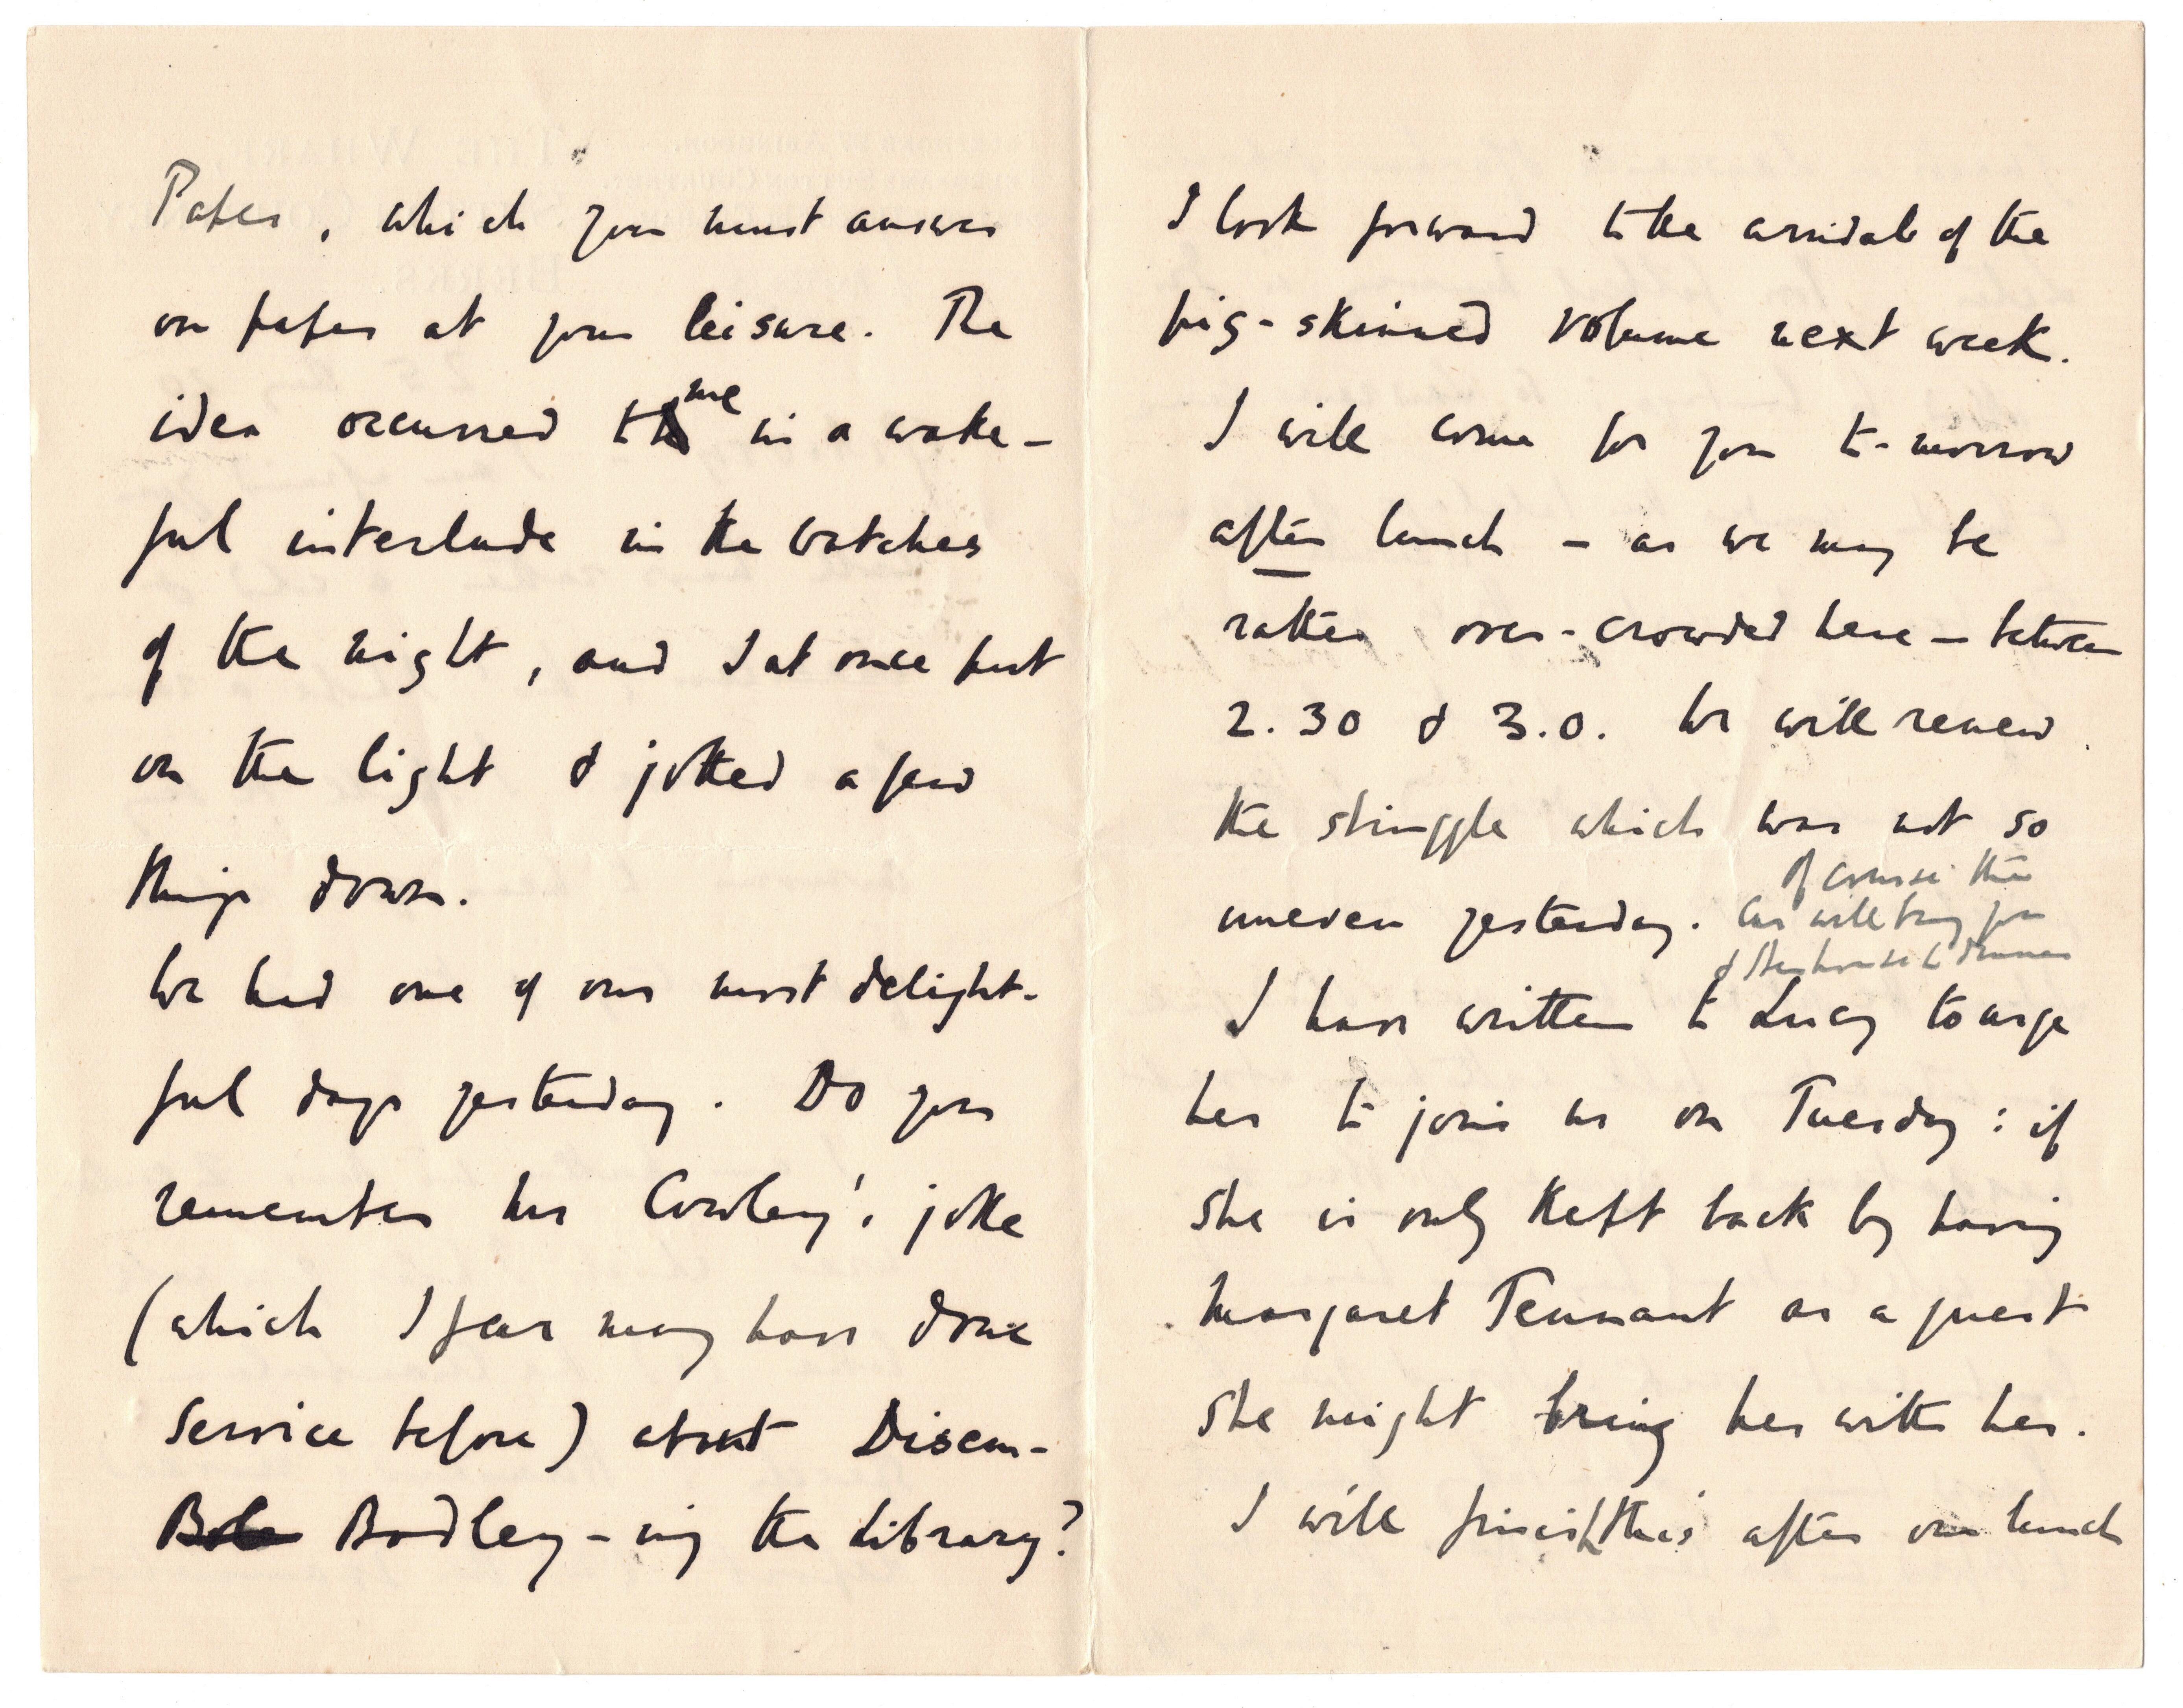 Paper, which you must answer
on paper at your leisure. The
idea occurred to me in a wake-
ful interlude in the watches
of the night, and I at once put
on the light & jotted a few
things down.
We had one of our most delight-
ful days yesterday. Do you
remember his Cowley's joke
(which I fear may have done
service before) about Disem-
Bodley-ing the Library?
I look forward to the arrival of the
pig-skinned volume next week.
I will come for you to-morrow
after lunch - as we may be
rather over-crowded here - between
2.30 & 3.0. We will renew
the struggle which was not so
uneven yesterday. Of course the
car will bring you
& to dinner
I have written to Lucy to urge
her to join us on Tuesday: if
she is only kept back by having
Margaret Tennant as a guest
she might bring her with her.
I will finish this after our lunch